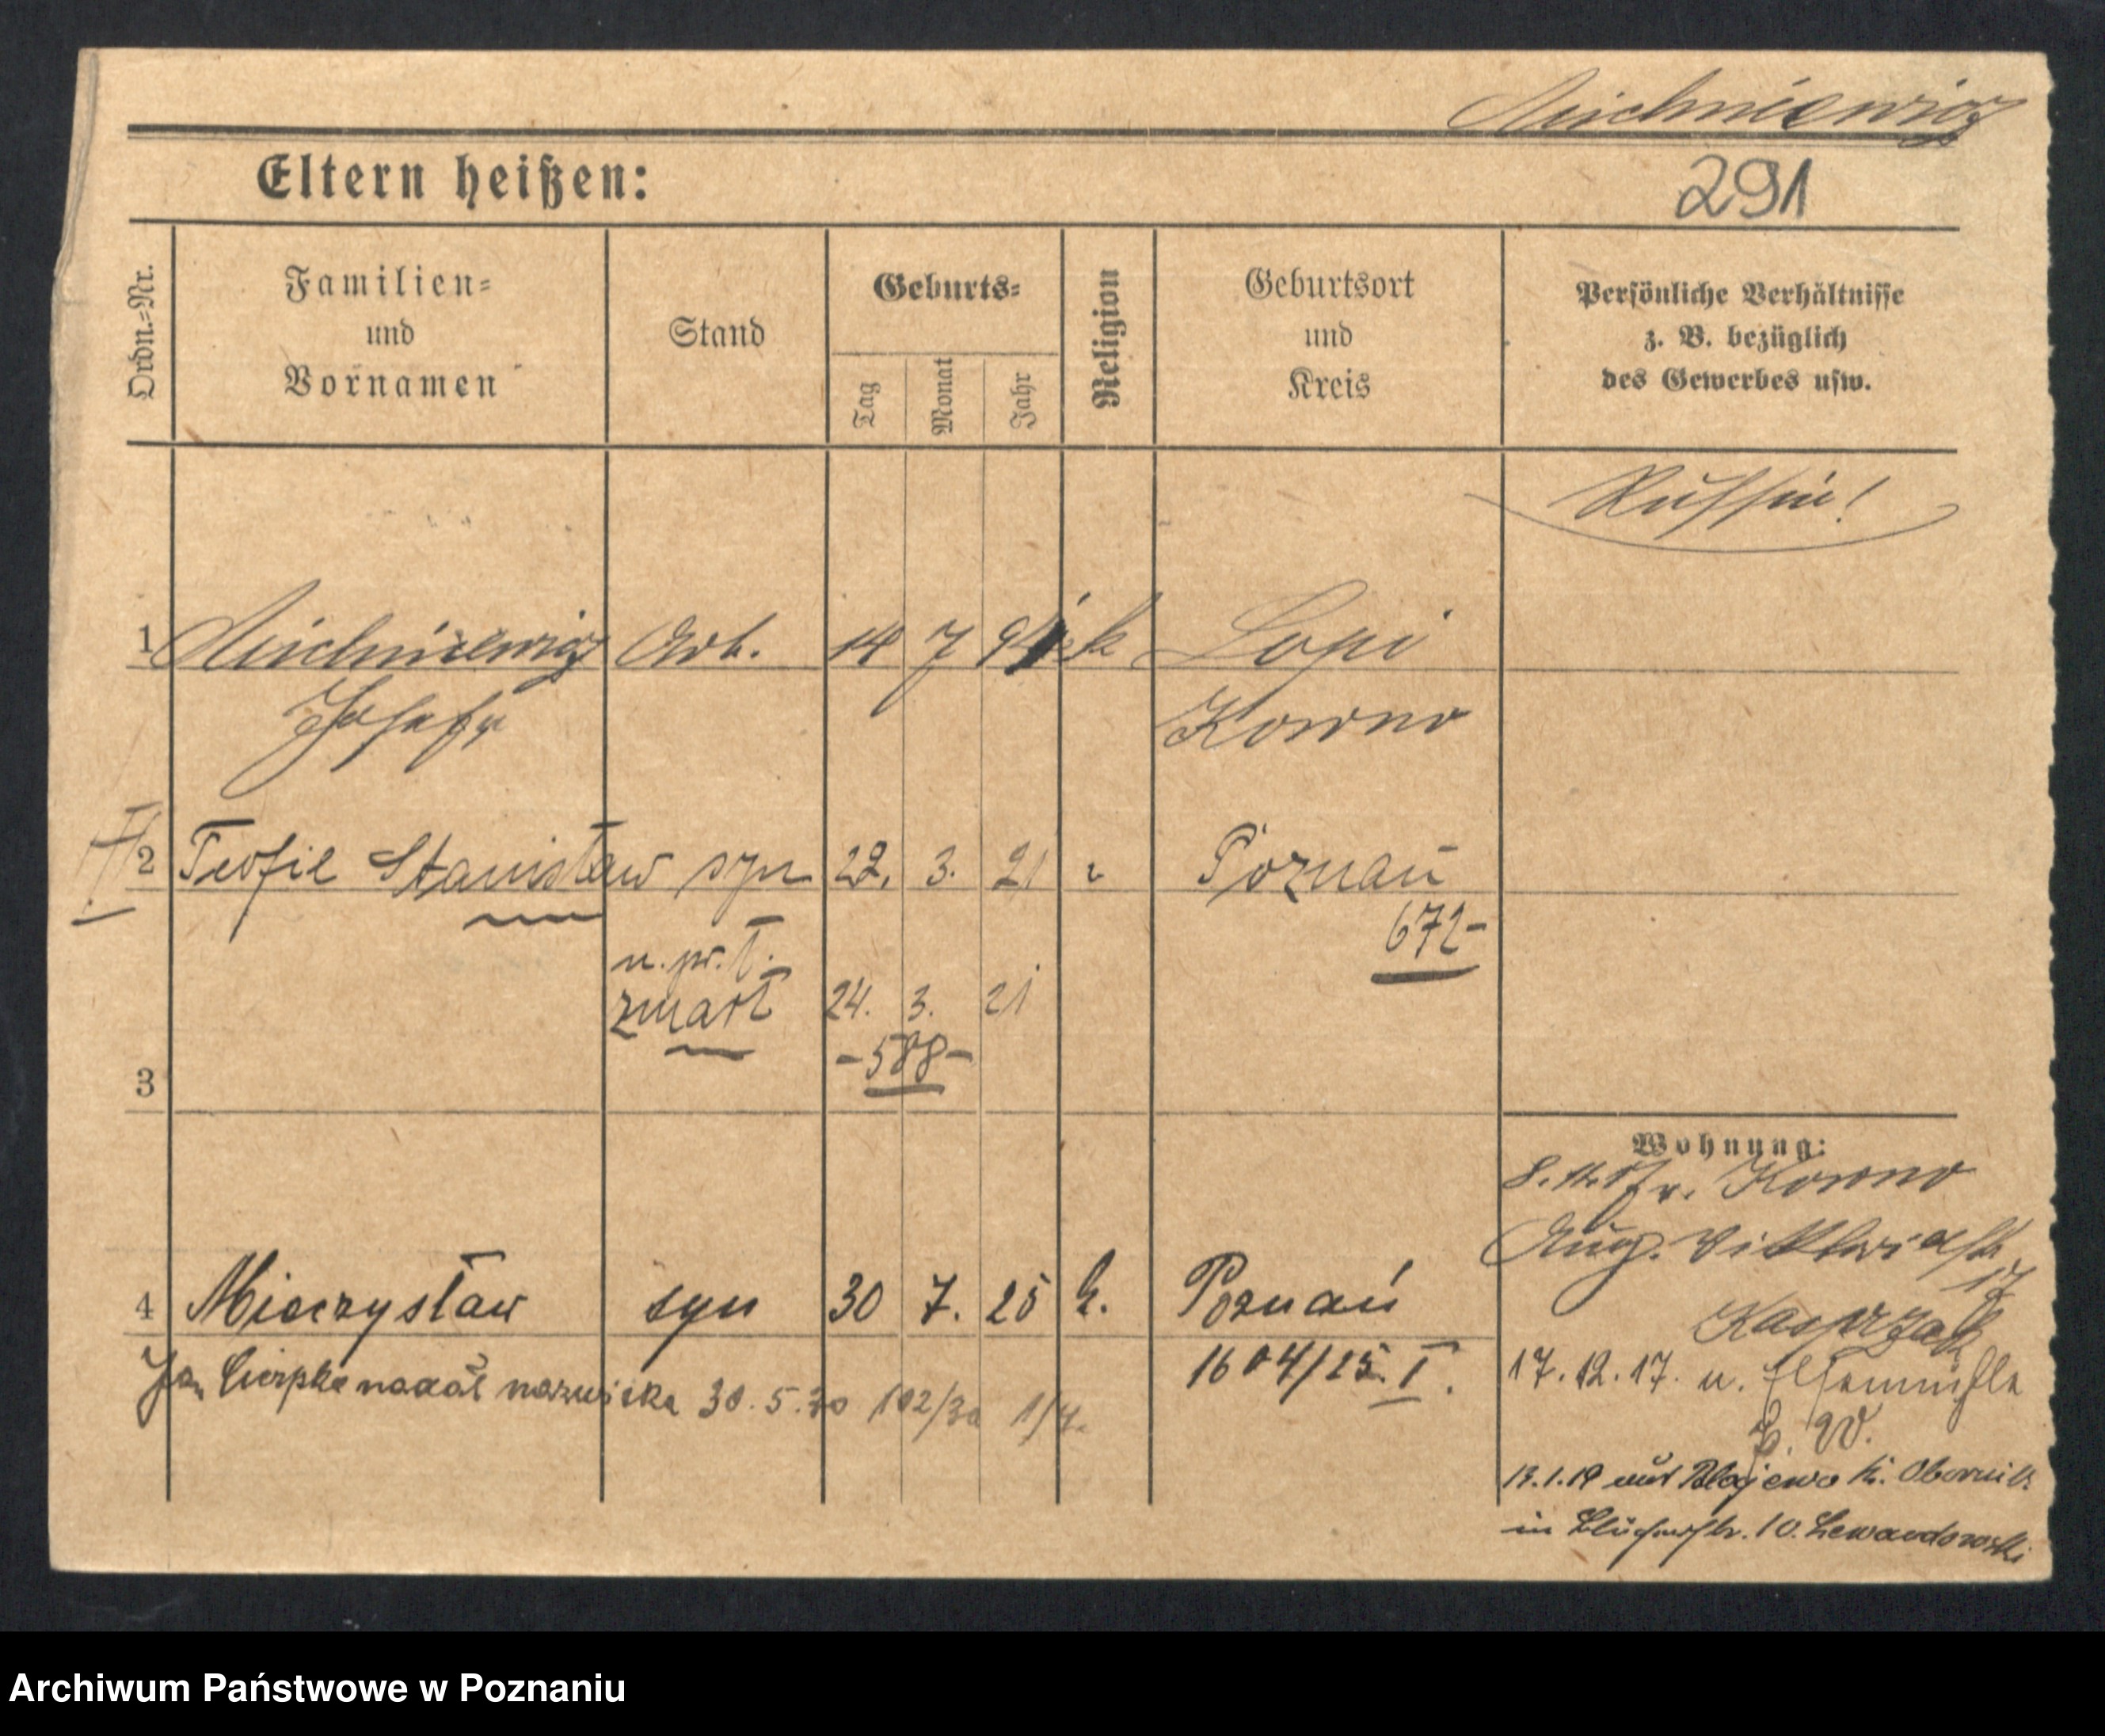 Michniewicz
291
Eltern heißen:
Ordn.=Nr.
Familien=
und
Vornamen
Stand
Geburts=
Tag
Monat
Jahr
Religion
Geburtsort
und
Kreis
Persönliche Verhältnisse
z. B. bezüglich
des Gewerbes usw.
Russin!
1 Michniewicz Arb. 14 7 k Lopi
Josefa Kowno
2 Teofil Stanisław syn 22. 3. 21 Poznań
672-
n. pr. T.
zmarł 24. 3. 21
-588-
3
Wohnung:
v. Kowno
Aug. Viktoriastr.
17
Kasprzak
4 Mieczysław syn 30 7. 25 k. Poznań
1604/25. I.
Jan Cierpka nadał nazwiska 30. 5. 30 102/30
17.12.17. n. Elsenmühle
b. W.
13.1.19 aus Blajewo K. Obornik
in Blücherstr. 10. Lewandowski
Archiwum Państwowe w Poznaniu